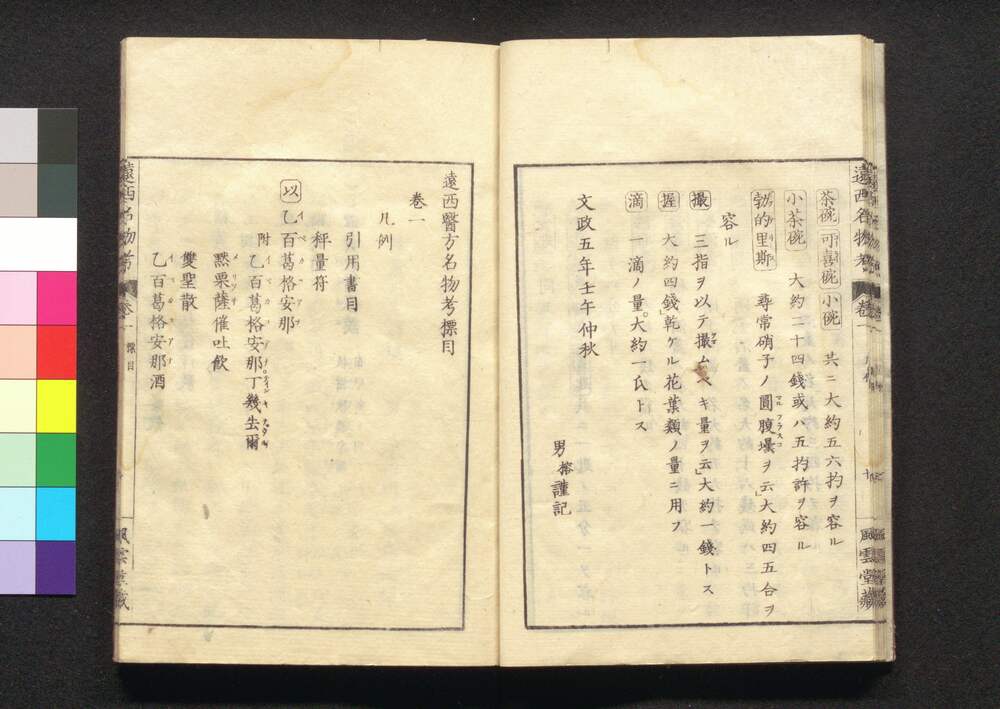 茶碗 可喜碗 小碗 共ニ大約五六扚ヲ容ル
小茶碗 大約二十四錢或ハ五扚許ヲ容ル
勃的里斯 尋常硝子ノ圓腹壜ヲ云」大約四五合ヲ
容ル
撮 三指ヲ以テ撮ムベキ量ヲ云」大約一錢トス
握 大約四錢乾ケル花葉類ノ量ニ用フ
滴 一滴ノ量。大約一氏トス
文政五年壬午仲秋
男榕謹記
遠西名物考 卷一
風雲堂藏
遠西醫方名物考標目
卷一
凡例
引用書目
秤量符
以 乙百葛格安那
附 乙百葛格安那丁幾去爾
黙栗薩催吐飲
雙聖散
乙百葛格安那酒
遠西名物考 卷一 標目
風雲堂藏